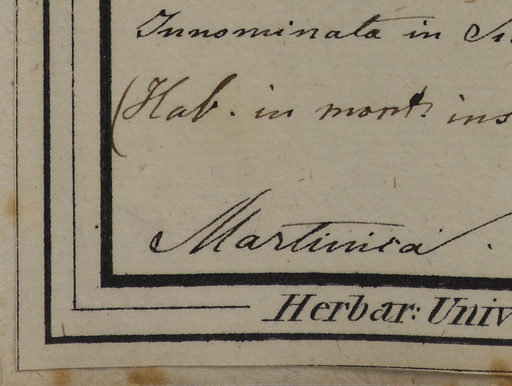 Innominata in
(Hab. in mont. ins
Martinica.
Herbar: Univ